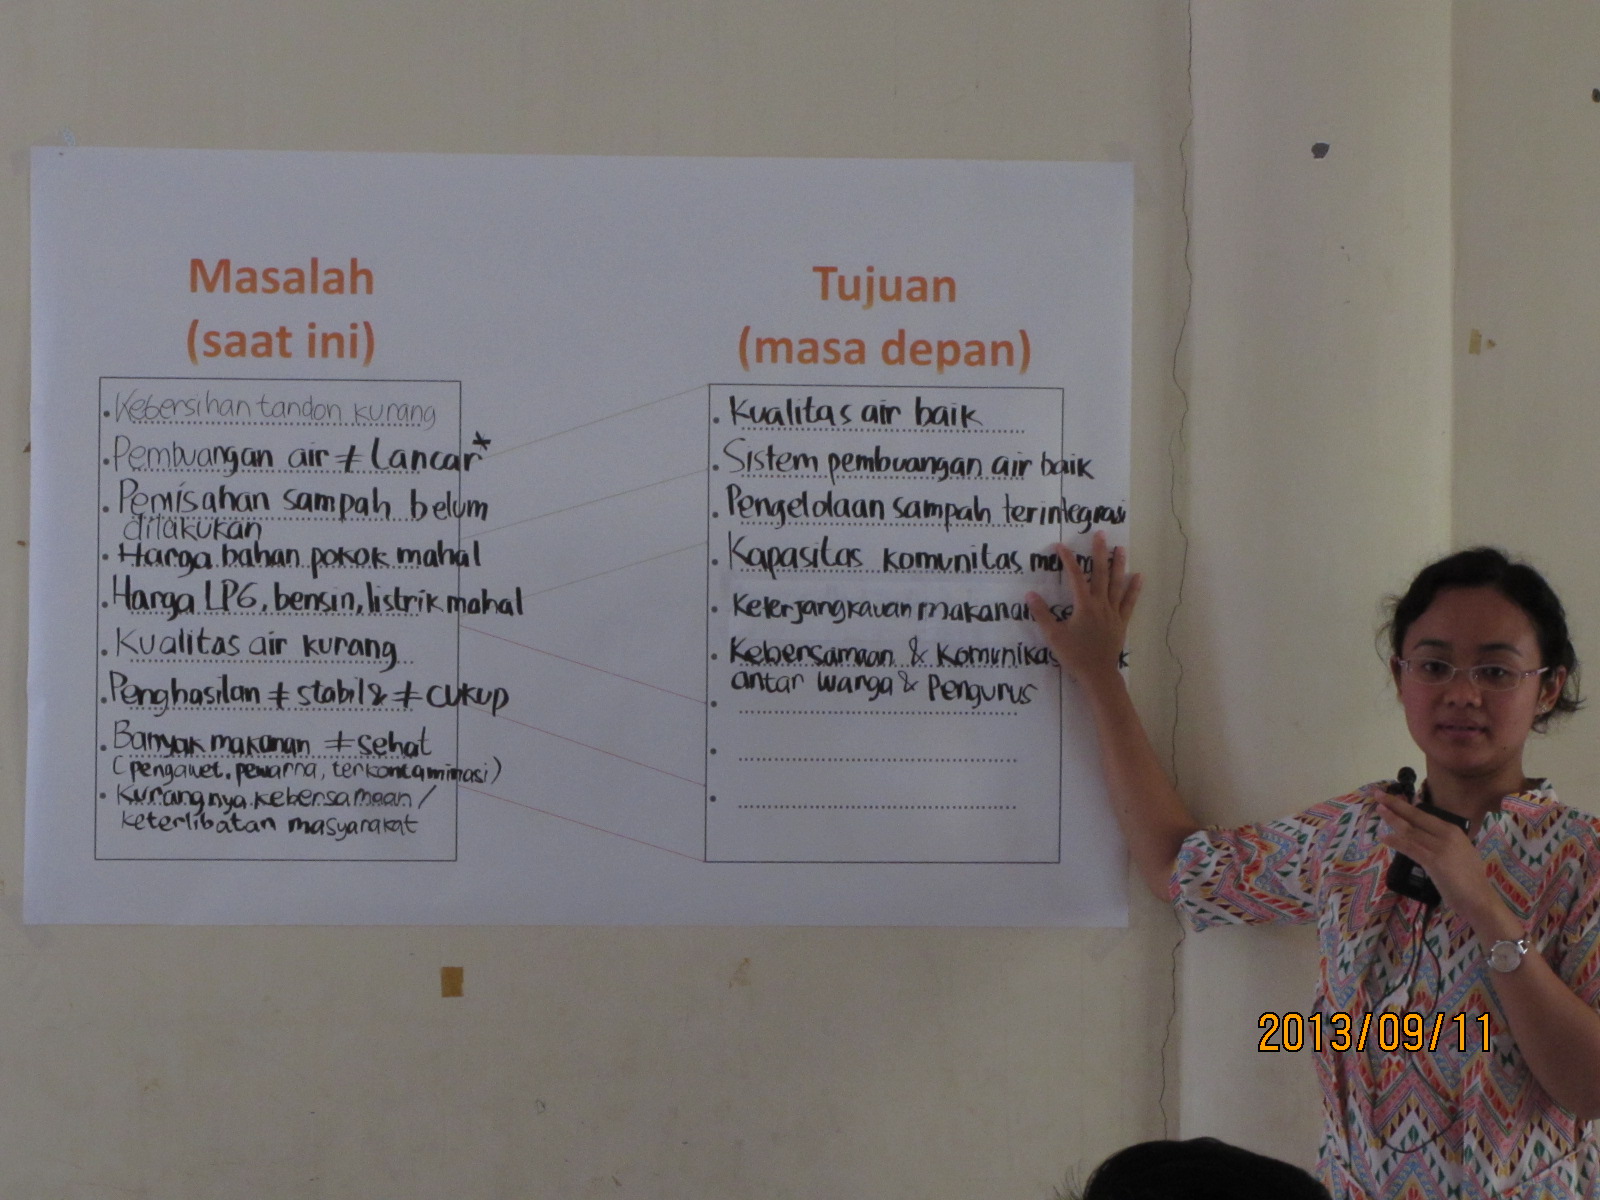 Masalah
(saat ini)
• Kebersihan tandon kurang
• Pembuangan air ≠ Lancar*
• Pemisahan sampah belum
dilakukan
• Harga bahan pokok mahal
• Harga LPG, bensin, listrik mahal
• Kualitas air kurang
• Penghasilan ≠ stabil & ≠ cukup
• Banyak makanan ≠ sehat
(pengawet, pewarna, terkontaminasi)
• Kurangnya kebersamaan/
keterlibatan masyarakat
Tujuan
(masa depan)
• Kualitas air baik
• Sistem pembuangan air baik
• Pengelolaan sampah terintegrasi
• Kapasitas komunitas
• Keterjangkauan makanan
• Kebersamaan & Komunikasi
antar warga & Pengurus
2013/09/11